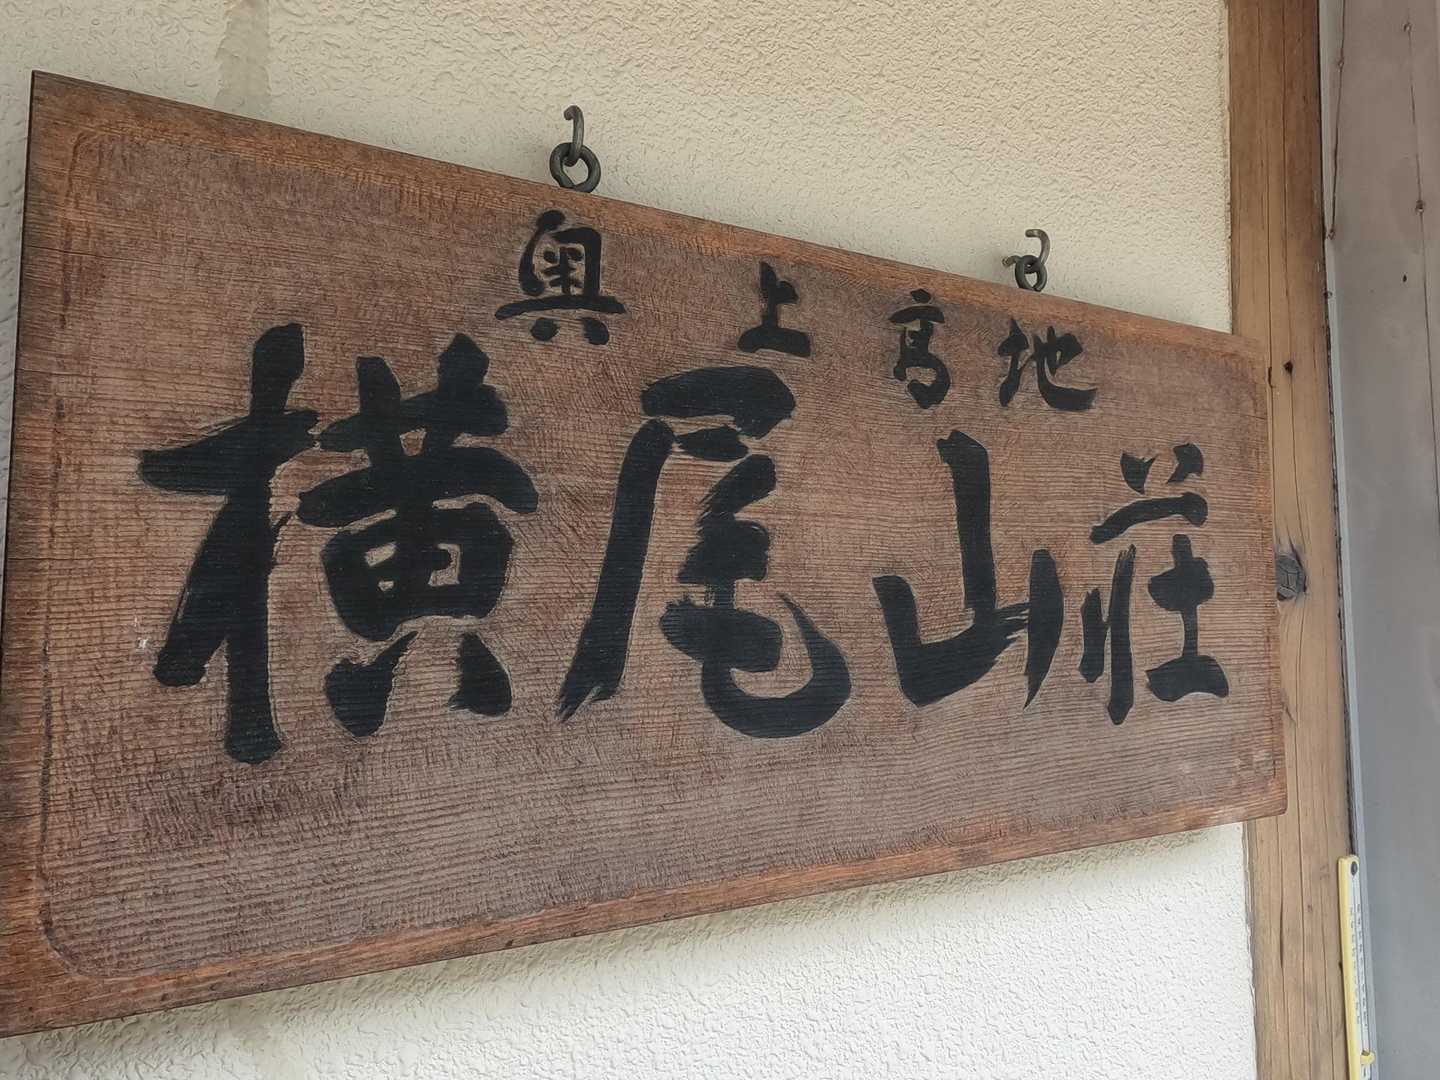 奥上高地
横尾山荘